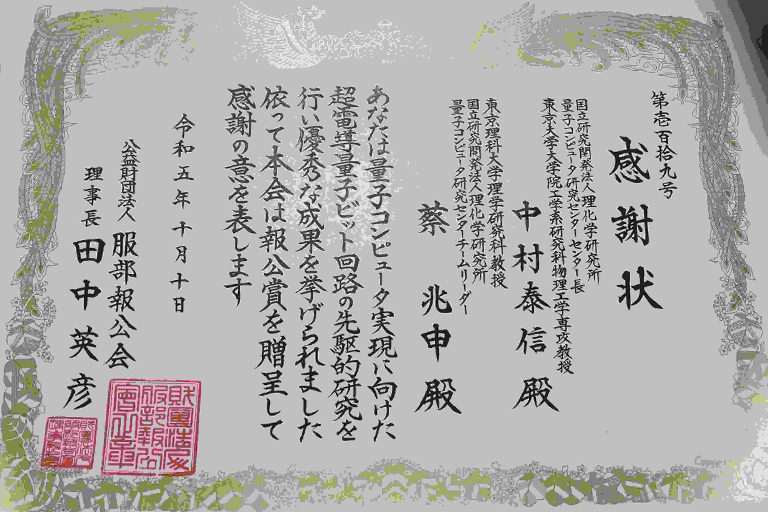 第壱百拾九号
感謝状
国立研究開発法人理化学研究所
量子コンピュータ研究センターセンター長
東京大学大学院工学系研究科物理工学専攻教授
中村泰信殿
東京理科大学理学研究科教授
国立研究開発法人理化学研究所
量子コンピュータ研究センターチームリーダー
蔡兆申殿
あなたは量子コンピュータ実現に向けた
超電導量子ビット回路の先駆的研究を
行い優秀な成果を挙げられました
依って本会は報公賞を贈呈して
感謝の意を表します
令和五年十月十日
公益財団法人
服部報公会
理事長
田中英彦